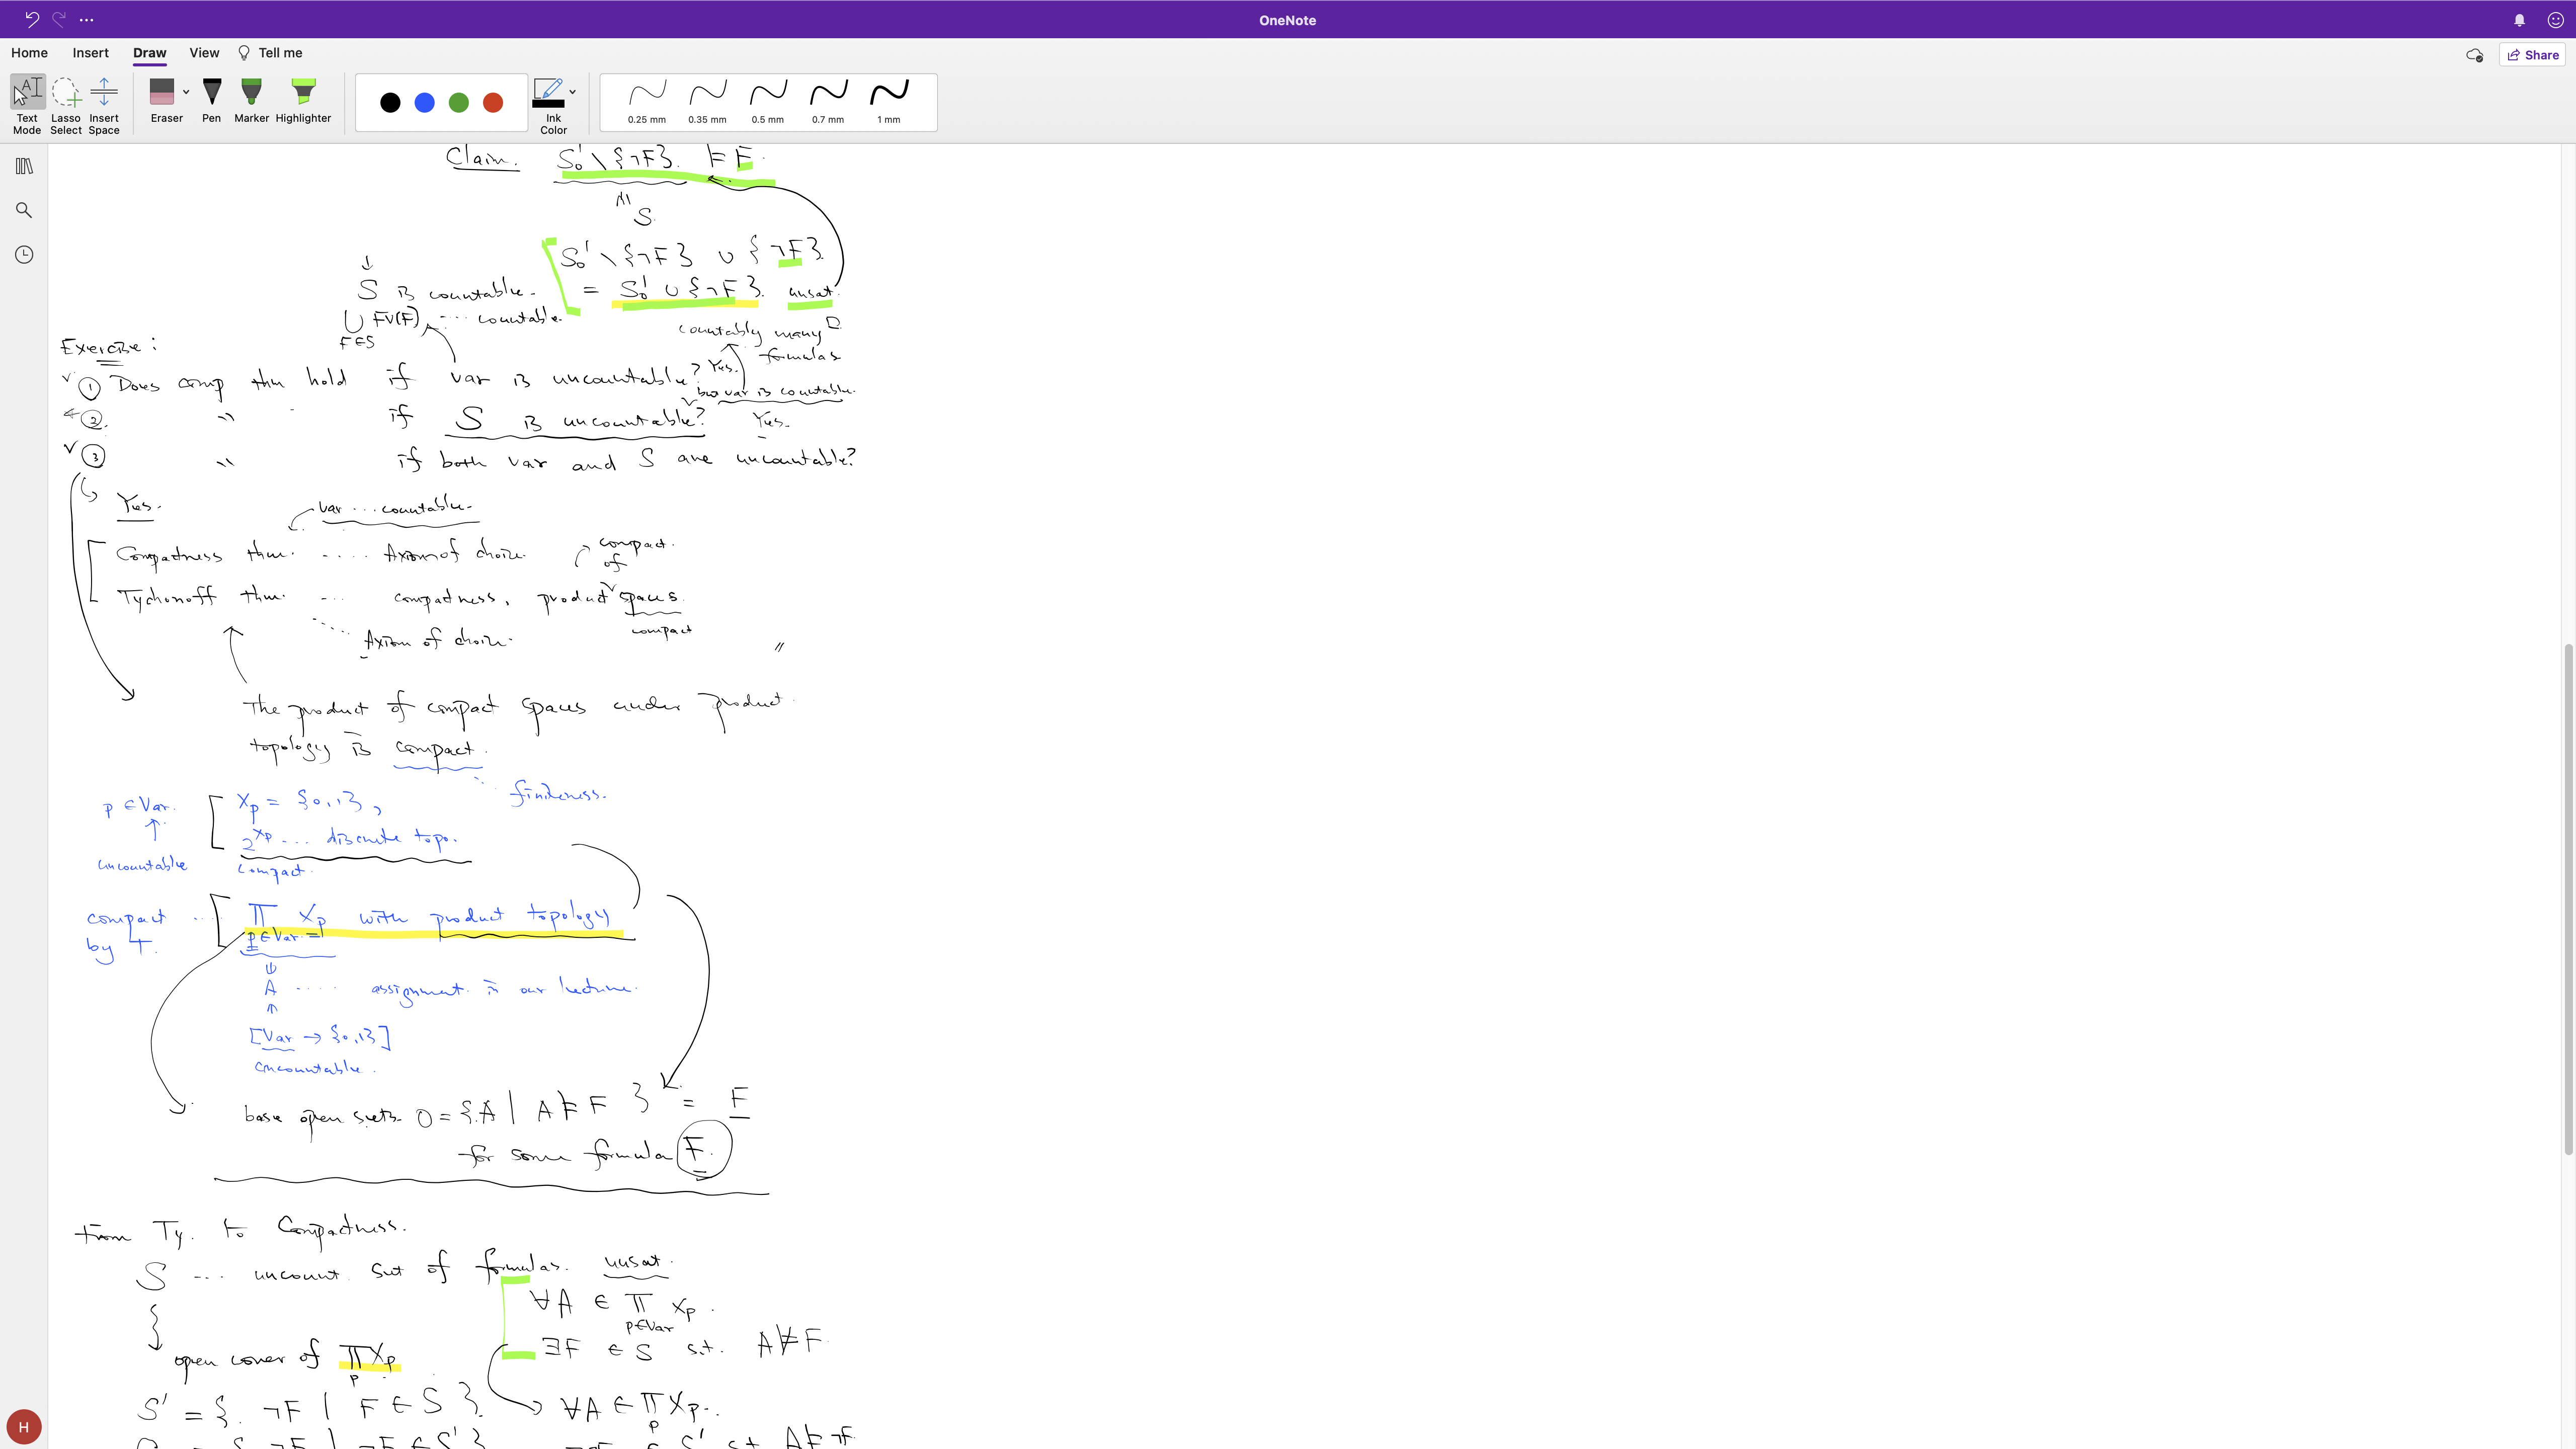 OneNote
Home Insert Draw View Tell me
Share
Text Mode
Lasso Select
Insert Space
Eraser
Pen
Marker
Highlighter
Ink Color
0.25 mm 0.35 mm 0.5 mm 0.7 mm 1 mm
Claim. S₀' \ {¬F} ⊨ F.
S
S₀' \ {¬F} ∪ {¬F}
= S₀' ∪ {¬F} unsat.
↓
S is countable.
⋃ FV(F) ... countable.
F∈S
countably many
formulas
Exercise:
① Does comp thm hold if var is uncountable? Yes.
but var is countable.
② " if S is uncountable? Yes.
③ " if both var and S are uncountable?
Yes.
var ... countable.
Compactness thm. .... Axiom of choice.
compact.
of
Tychonoff thm. ... compactness, product spaces.
compact
Axiom of choice.
The product of compact spaces under product
topology is compact.
finiteness.
p ∈ Var. Xp = {0,1},
↑ 2^Xp ... discrete topo.
uncountable compact.
compact ... ∏ Xp with product topology
by T. p∈Var
A .... assignment in our lecture.
↑
[Var → {0,1}]
uncountable.
base open sets O = {A | A ⊨ F } = F
for some formula F.
From Ty. to Compactness.
S ... uncount. set of formulas. unsat.
∀A ∈ ∏ Xp.
p∈Var
∃F ∈ S s.t. A ⊭ F.
open cover of ∏ Xp
p
S' = {. ¬F | F ∈ S }. ∀A ∈ ∏ Xp.
p
H